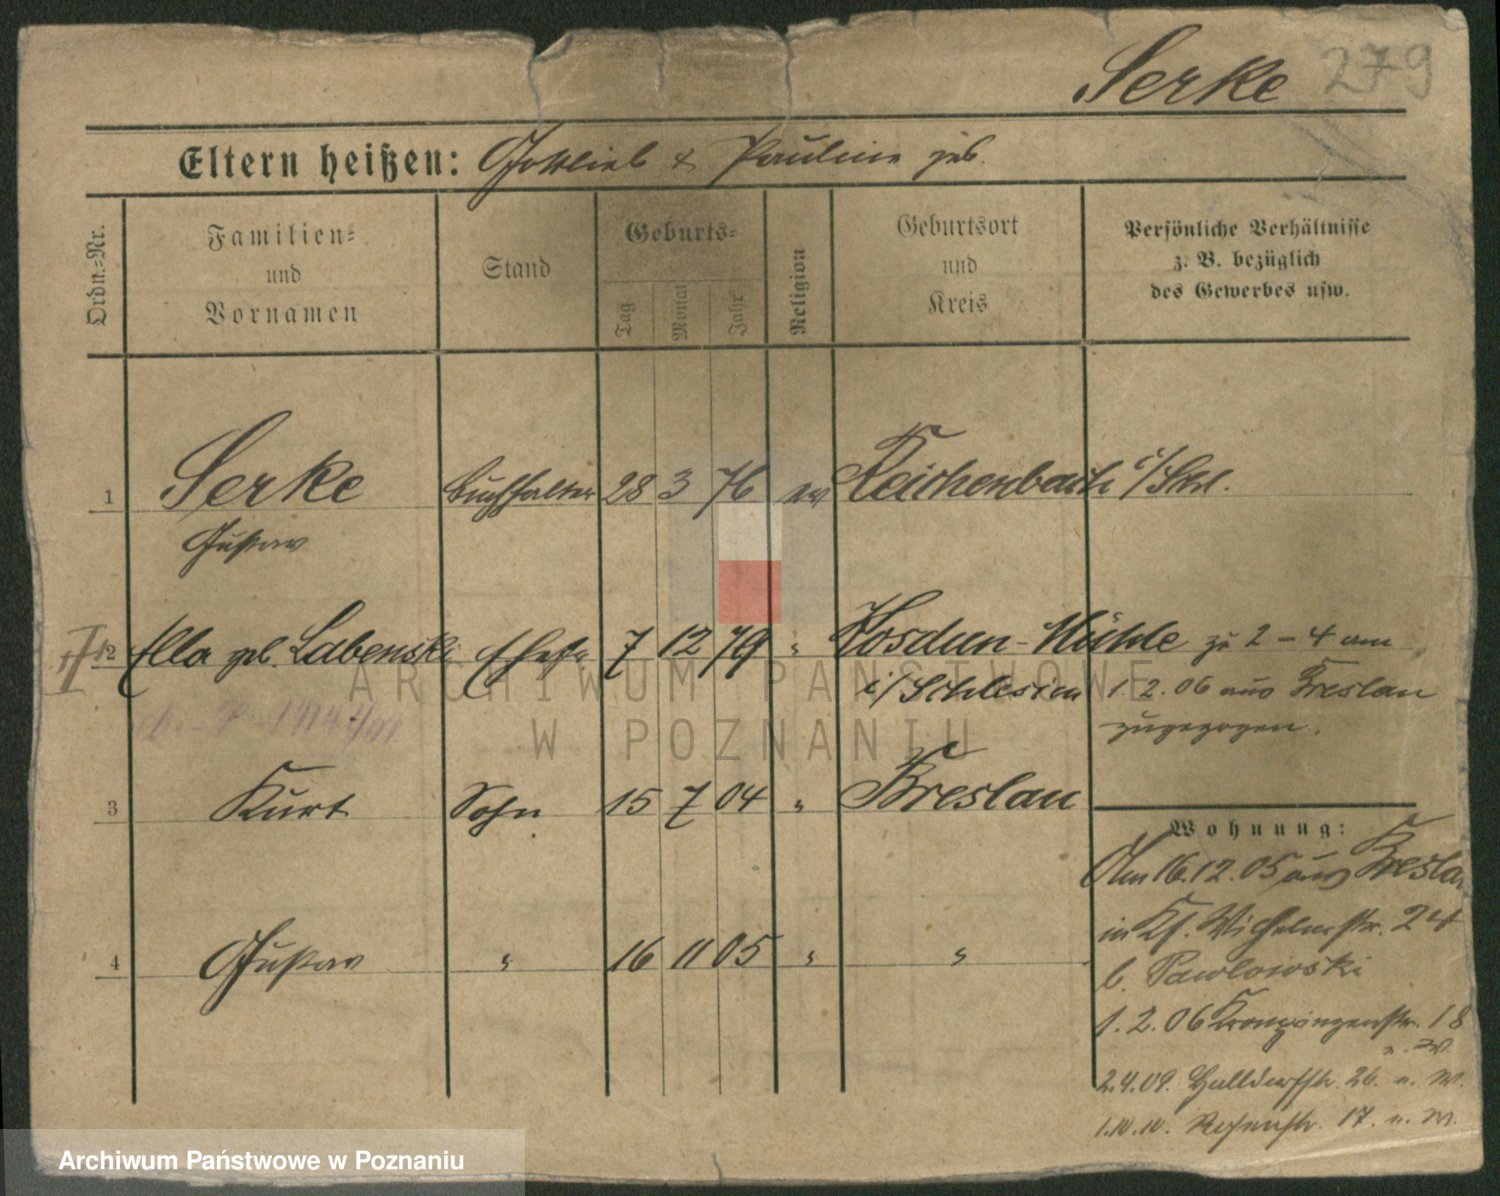 Serke 279
Eltern heißen: Gottlieb & Pauline geb.
Ordn.-Nr.
Familien-
und
Vornamen
Stand
Geburts-
Tag
Monat
Jahr
Religion
Geburtsort
und
Kreis
Persönliche Verhältnisse
z. B. bezüglich
des Gewerbes usw.
1 Serke Buchhalter 28 3 76 ev Reichenbach i/Schl.
Gustav
2 Ella geb. Labenski Ehefr 7 12 79 " Mühle zu 2-4 am
i/Schlesien 1.2.06 aus Breslau
zugezogen.
ARCHIWUM PAŃSTWOWE
W POZNANIU
3 Kurt Sohn 15 7 04 " Breslau
4 Gustav " 16 11 05 " "
Wohnung:
Am 16.12.05 aus Breslau
in Wilhelmstr. 24
b. Pawlowski
1.2.06 Kronprinzenstr. 18
2.4.09. 26.
1.10.10. 17.
Archiwum Państwowe w Poznaniu